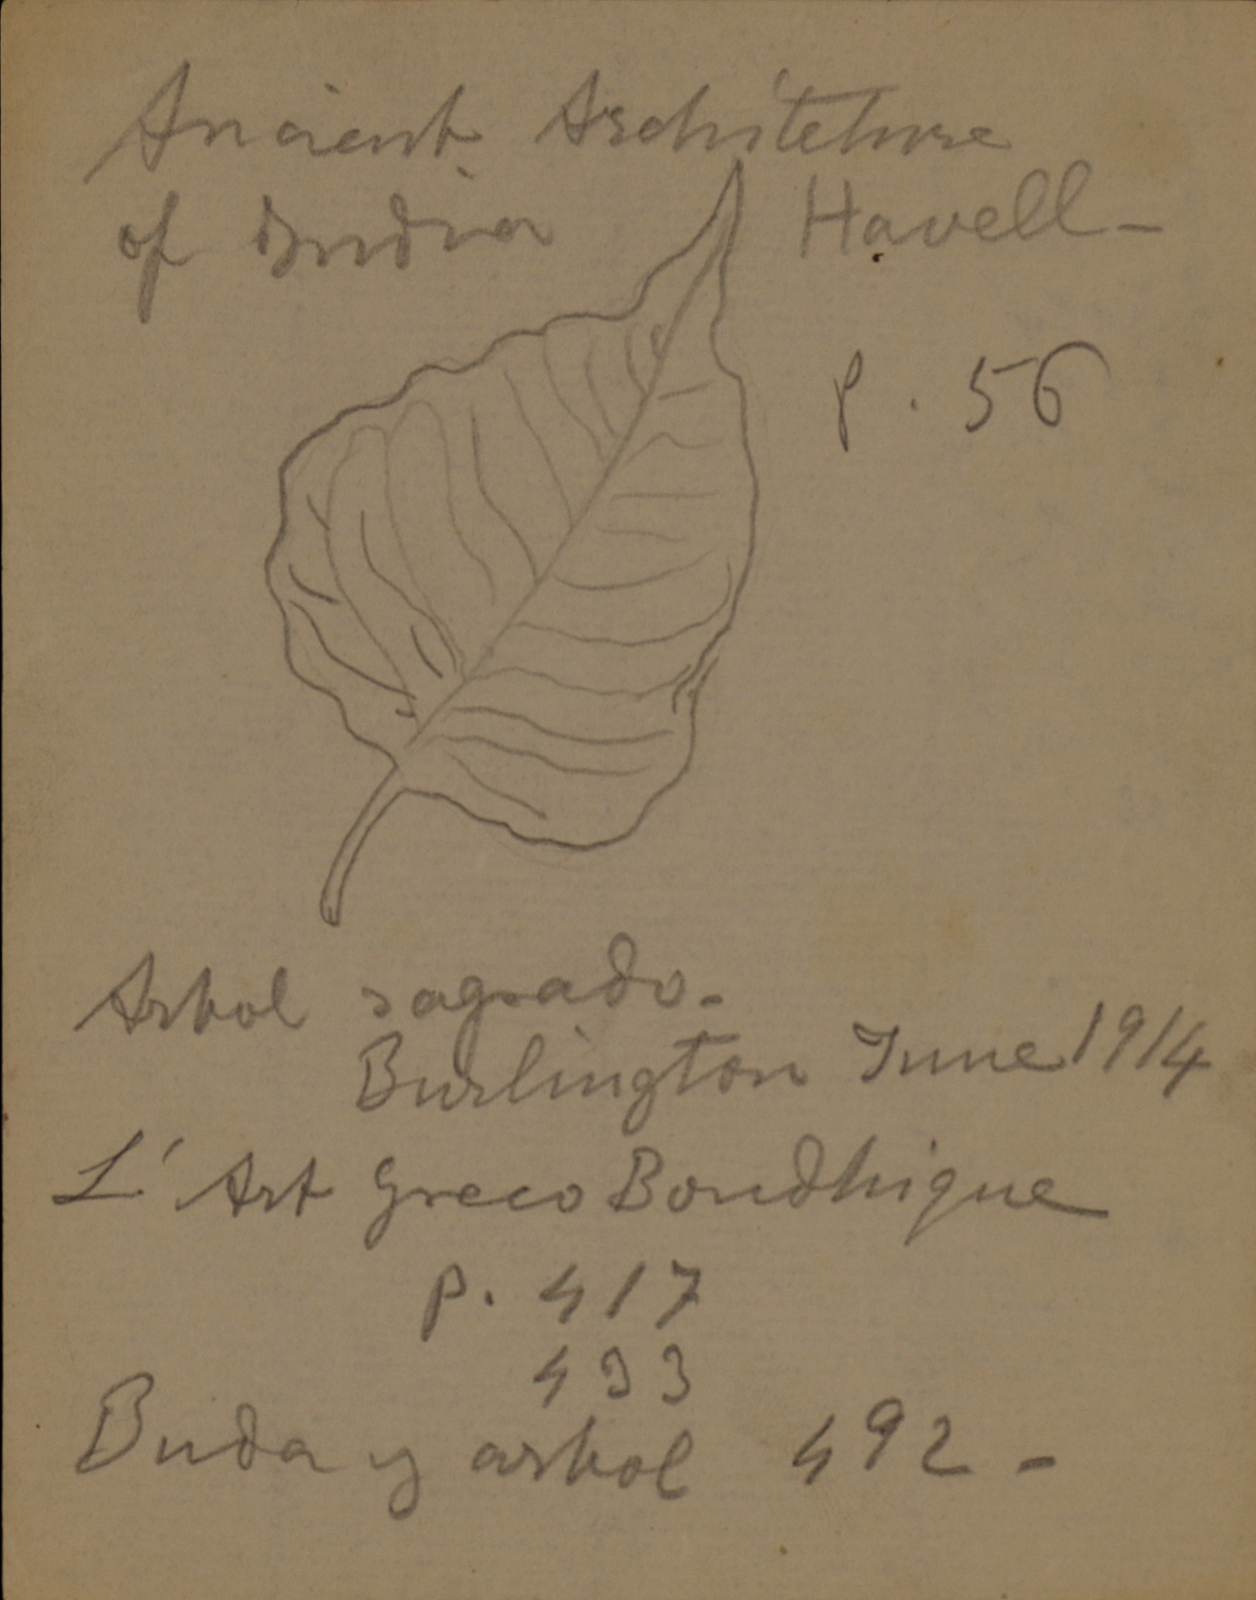 Ancient Architeture
of India Havell -
p. 56
Arbol sagrado.
Burlington June 1914
L'Art Greco Boudhique
p. 417
433
Buda y arbol 492 -